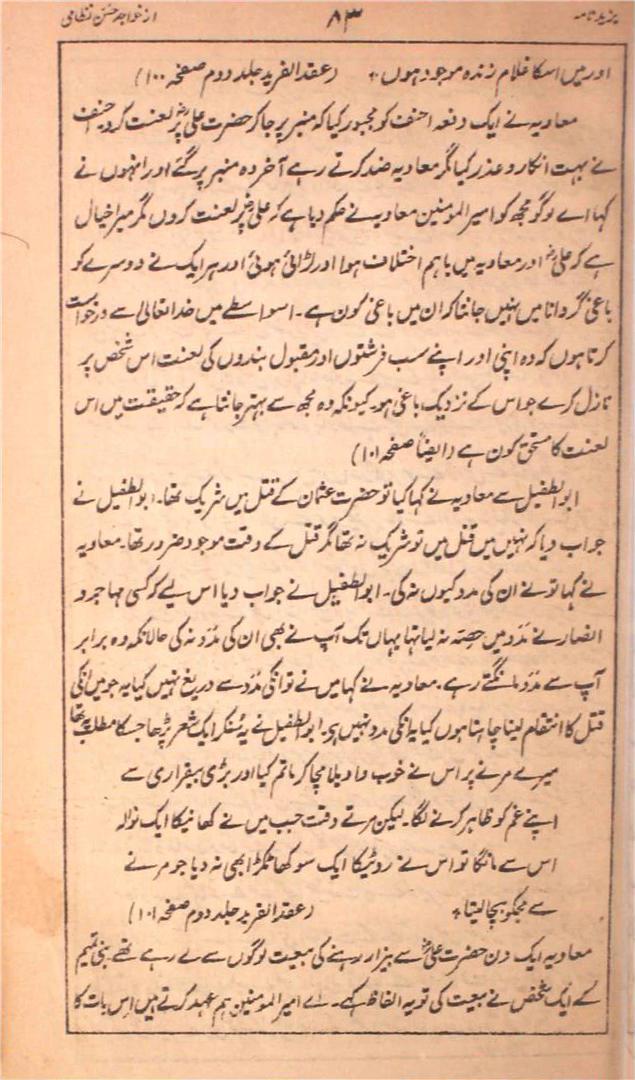 یزید نامہ ۸۳ از خواجہ حسن نظامی
اور میں اسکا غلام زندہ موجود ہوں۔ (عقد الفرید جلد دوم صفحہ ۱۰۰)
معاویہ نے ایک دفعہ احنف کو مجبور کیا کہ منبر پر جا کر حضرت علیؓ پر لعنت کرو۔ احنف
نے بہت انکار و عذر کیا مگر معاویہ ضد کرتے رہے آخر وہ منبر پر گئے اور انہوں نے
کہا اے لوگو مجھ کو امیر المومنین معاویہ نے حکم دیا ہے کہ علیؓ پر لعنت کروں مگر میرا خیال
ہے کہ علیؓ اور معاویہ میں باہم اختلاف ہوا اور لڑائی ہوئی اور ہر ایک نے دوسرے کو
باغی گردانا میں نہیں جانتا کہ ان میں باغی کون ہے۔ اسواسطے میں خدا تعالیٰ سے درخواست
کرتا ہوں کہ وہ اپنی اور اپنے سب فرشتوں اور مقبول بندوں کی لعنت اس شخص پر
نازل کرے جو اس کے نزدیک باغی ہو۔ کیونکہ وہ مجھ سے بہتر جانتا ہے کہ حقیقت میں اس
لعنت کا مستحق کون ہے (ایضاً صفحہ ۱۰۱)
ابو الطفیل سے معاویہ نے کہا کیا تو حضرت عثمان کے قتل میں شریک تھا۔ ابو الطفیل نے
جواب دیا کہ نہیں میں قتل میں تو شریک نہ تھا مگر قتل کے وقت موجود ضرور تھا۔ معاویہ
نے کہا تو نے ان کی مدد کیوں نہ کی۔ ابو الطفیل نے جواب دیا اس لیے کہ کسی مہاجر و
انصار نے مدد میں حصہ نہ لیا تہا یہاں تک آپ نے بھی ان کی مدد نہ کی حالانکہ وہ برابر
آپ سے مدد مانگتے رہے۔ معاویہ نے کہا میں نے تو انکی مدد سے دریغ نہیں کیا یہ جو میں انکی
قتل کا انتقام لینا چاہتا ہوں کیا یہ انکی مدد نہیں ہے۔ ابو الطفیل نے یہ سُنکر ایک شعر پڑھا جسکا مطلب یہ تھا
میرے مرنے پر اس نے خوب واویلا مچا کر ماتم کیا اور بڑی بیقراری سے
اپنے غم کو ظاہر کرنے لگا۔ لیکن مرتے وقت جب میں نے کھانیکا ایک نوالہ
اس سے مانگا تو اس نے روٹیکا ایک سوکھا ٹکڑا بھی نہ دیا جو مرنے
سے مجکو بچا لیتا۔ (عقد الفرید جلد دوم صفحہ ۱۰۱)
معاویہ ایک دن حضرت علیؓ سے بیزار رہنے کی بیعت لوگوں سے لے رہے تھے بنی تمیم
کے ایک شخص نے بیعت کی تو یہ الفاظ کہے۔ اے امیر المومنین ہم عہد کرتے ہیں اس بات کا